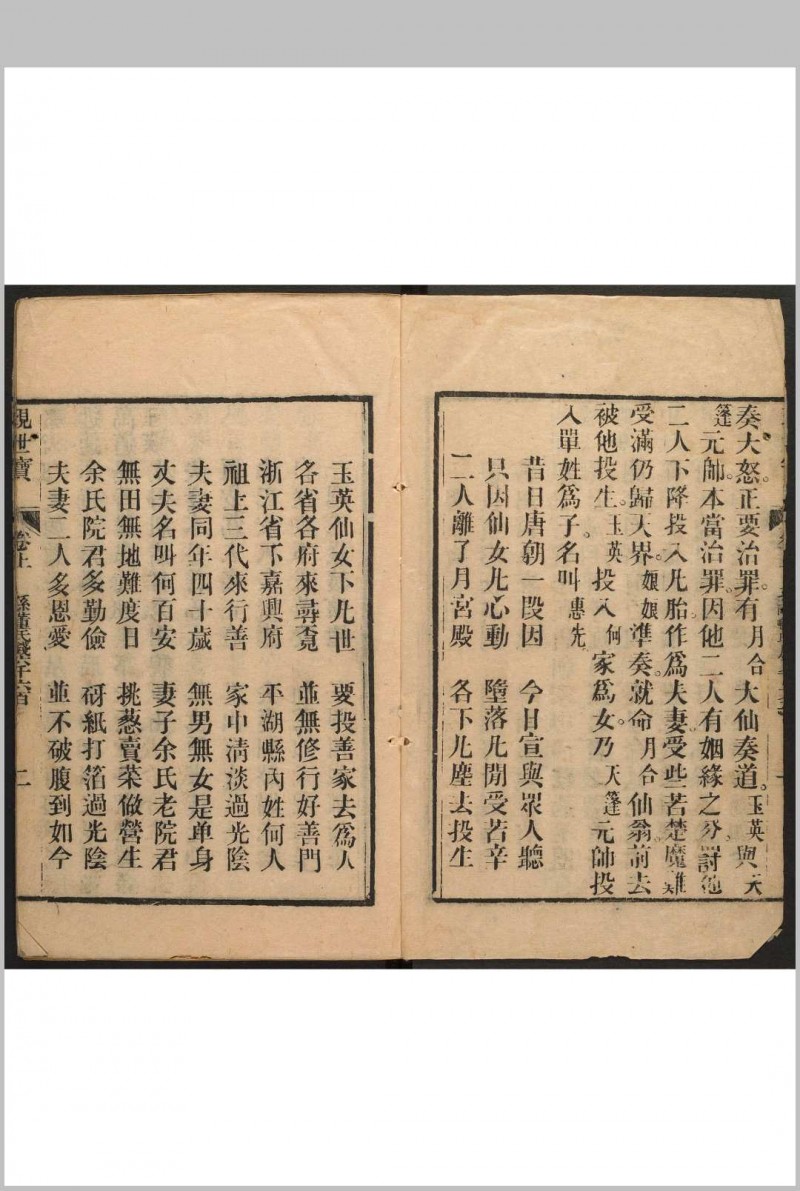 奏大怒。正要治罪。有月合大仙奏道。玉英與天
篷元帥。本當治罪。因他二人有姻緣之分、罰他
二人下降。投入凢胎。作爲夫妻。受些苦楚魔難
受滿仍歸天界。娘娘準奏。就命月合仙翁前去
被他投生。玉英投入何家爲女。乃天篷元帥投
入單姓爲子。名叫惠先。
昔日唐朝一段因　今日宣與眾人聽
只因仙女凢心動　墮落凢間受苦辛
二人離了月宮殿　各下凢塵去投生
玉英仙女下凢世　要投善家去爲人
各省各府來尋覔　並無修行好善門
浙江省下嘉興府　平湖縣內姓何人
祖上三代來行善　家中清淡過光陰
夫妻同年四十歲　無男無女是单身
丈夫名叫何百安　妻子余氏老院君
無田無地難度日　挑葱賣菜做營生
余氏院君多勤儉　砑紙打箔過光陰
夫妻二人多恩愛　並不破腹到如今
卷上
二